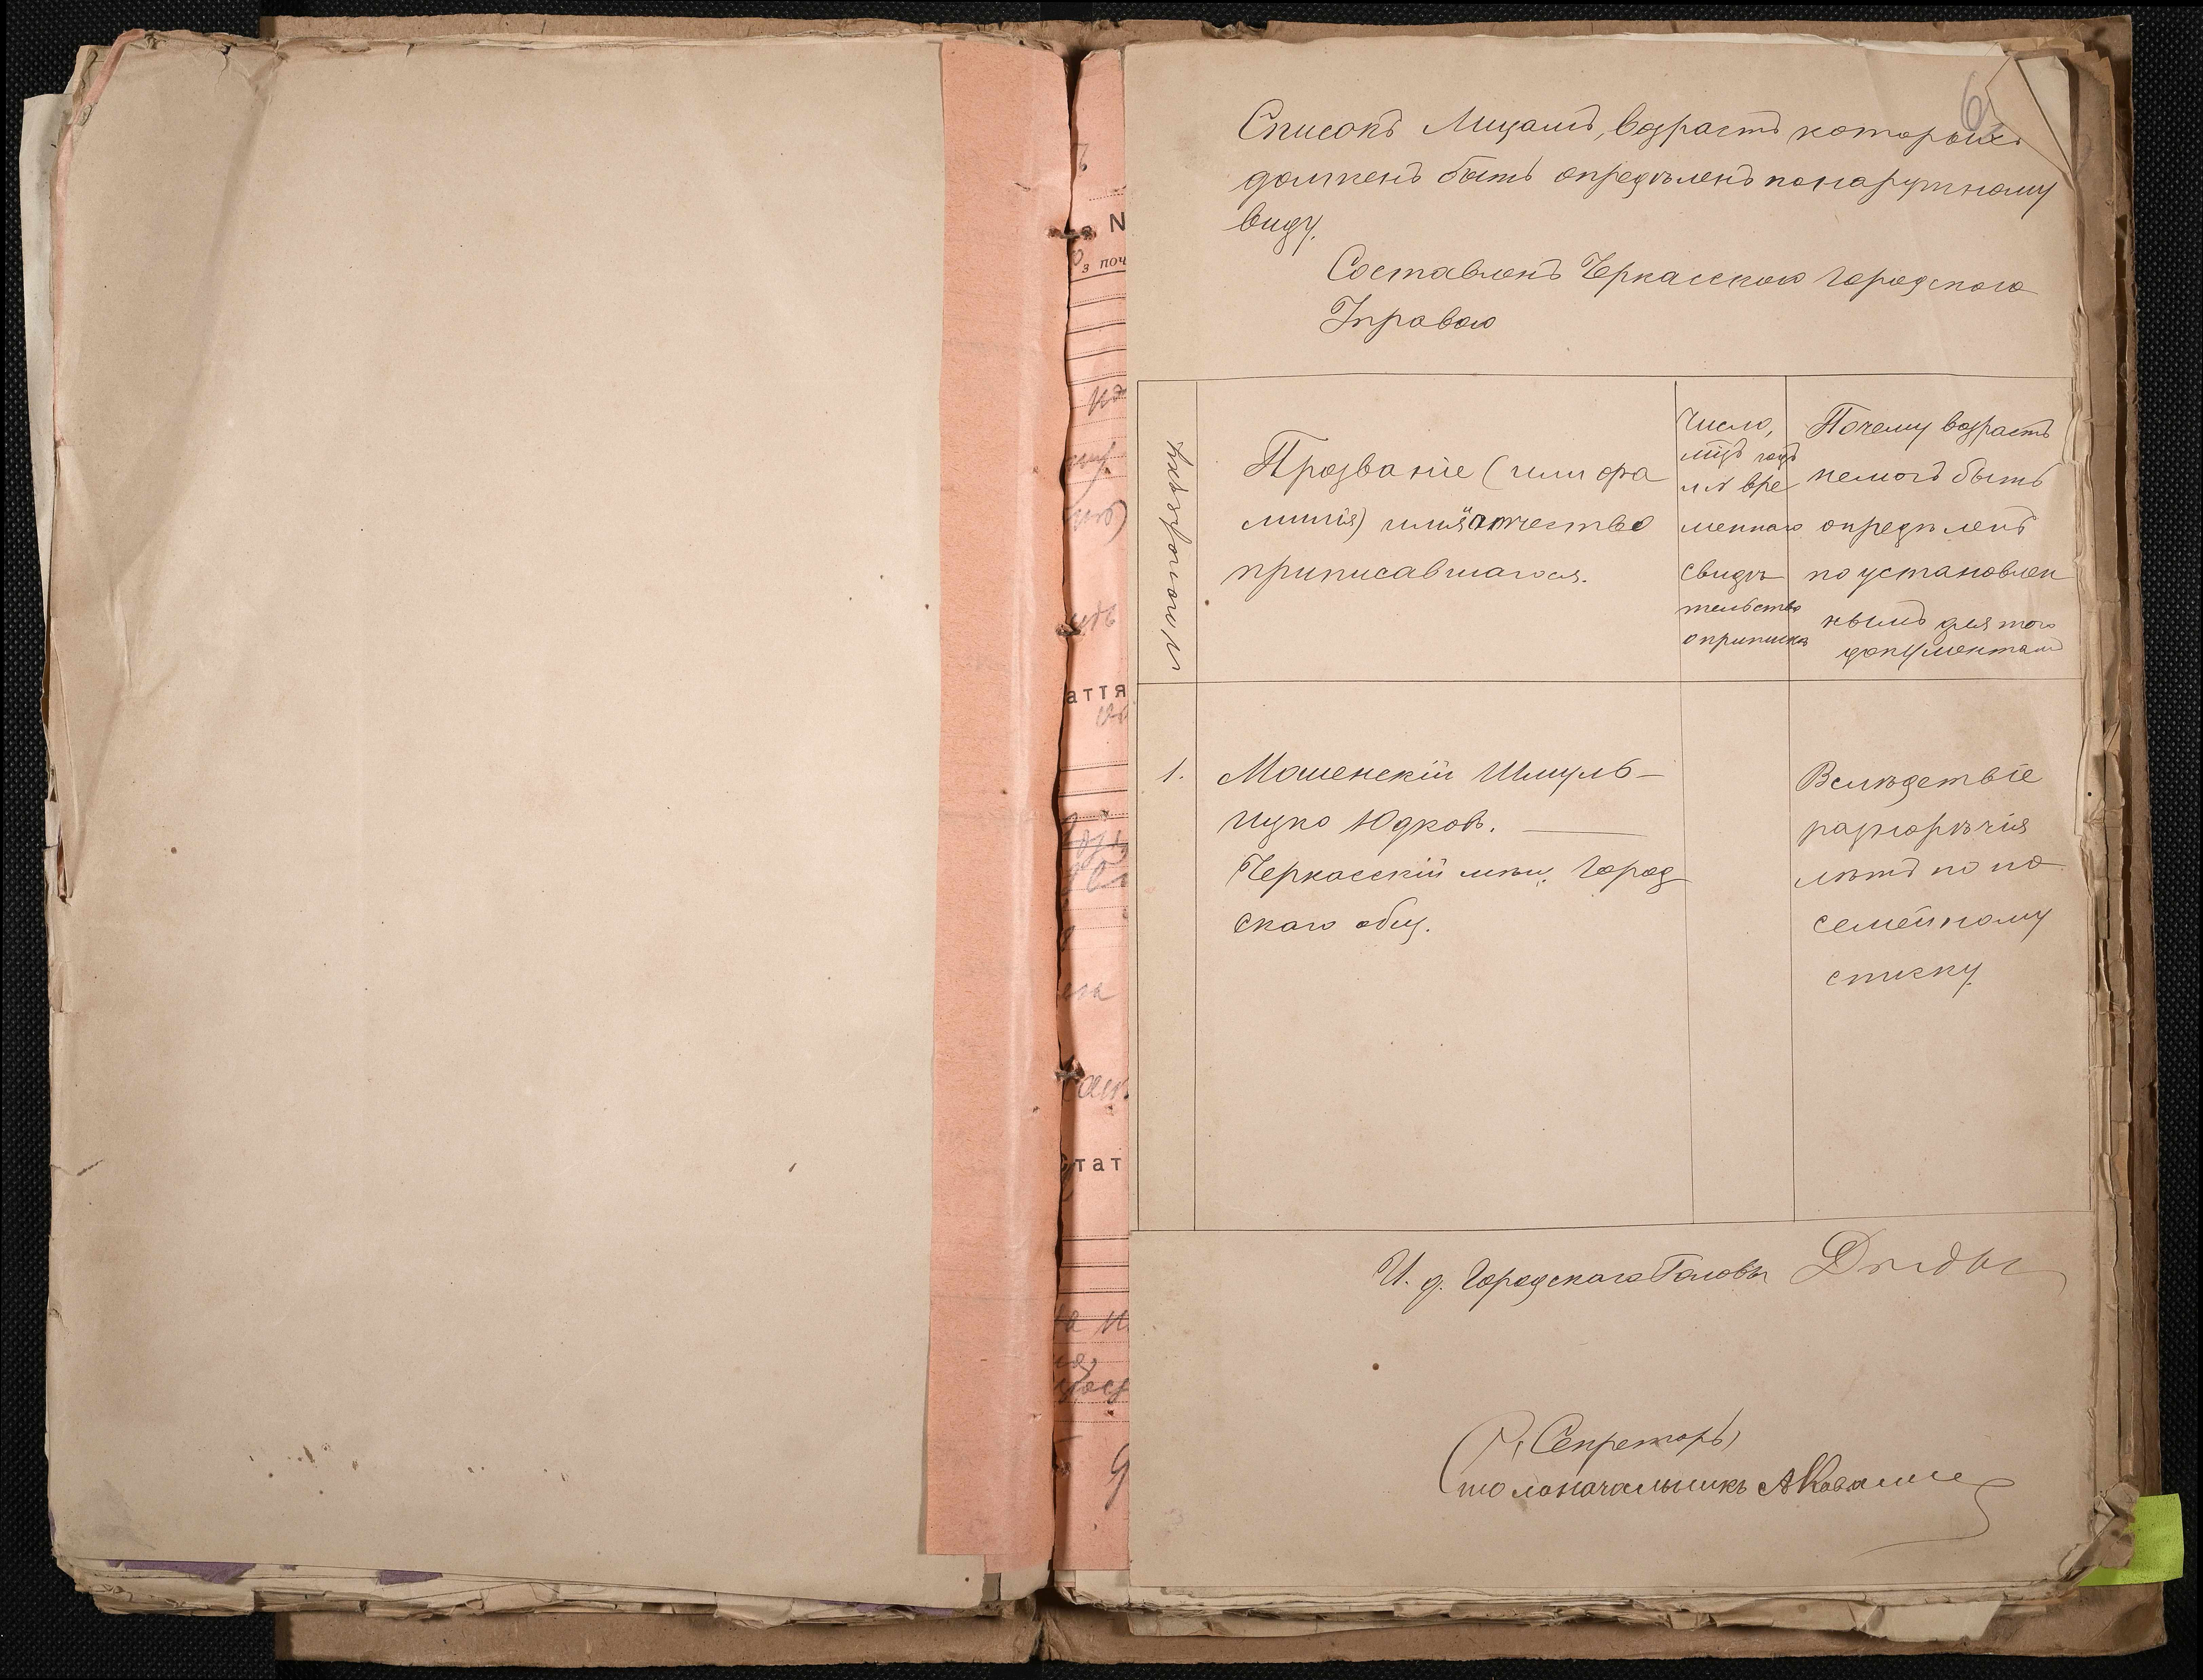 6
Списокъ Лицамъ, возрастъ которыхъ
долженъ быть опредѣленъ по наружному
виду.
Составленъ Черкасскою Городскою
Управою
№ по порядку
Прозваніе (или фа
милія) имя и отчество
приписавшагося.
Число,
мцъ годъ
и № вре
меннаго
свидѣ
тельства
о припискѣ
Почему возрастъ
не могъ быть
опредѣленъ
по установлен
нымъ для того
документамъ
1.
Мошенскій Шмуль-
Ицко Юдковъ.
Черкасскій мѣщ. Город
скаго общ.
Вслѣдствіе
разнорѣчія
лѣтъ по по
семейному
списку.
И. д. Городскаго Головы
Секретарь
Столоначальникъ
N
з поч
аття
тат